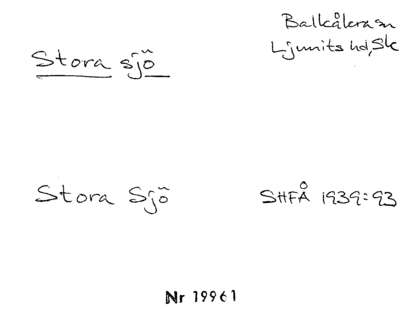 Balkåkra sn
Ljunits hd, Sk
Stora sjö
Stora Sjö
SHFÅ 1939:93
Nr 19961